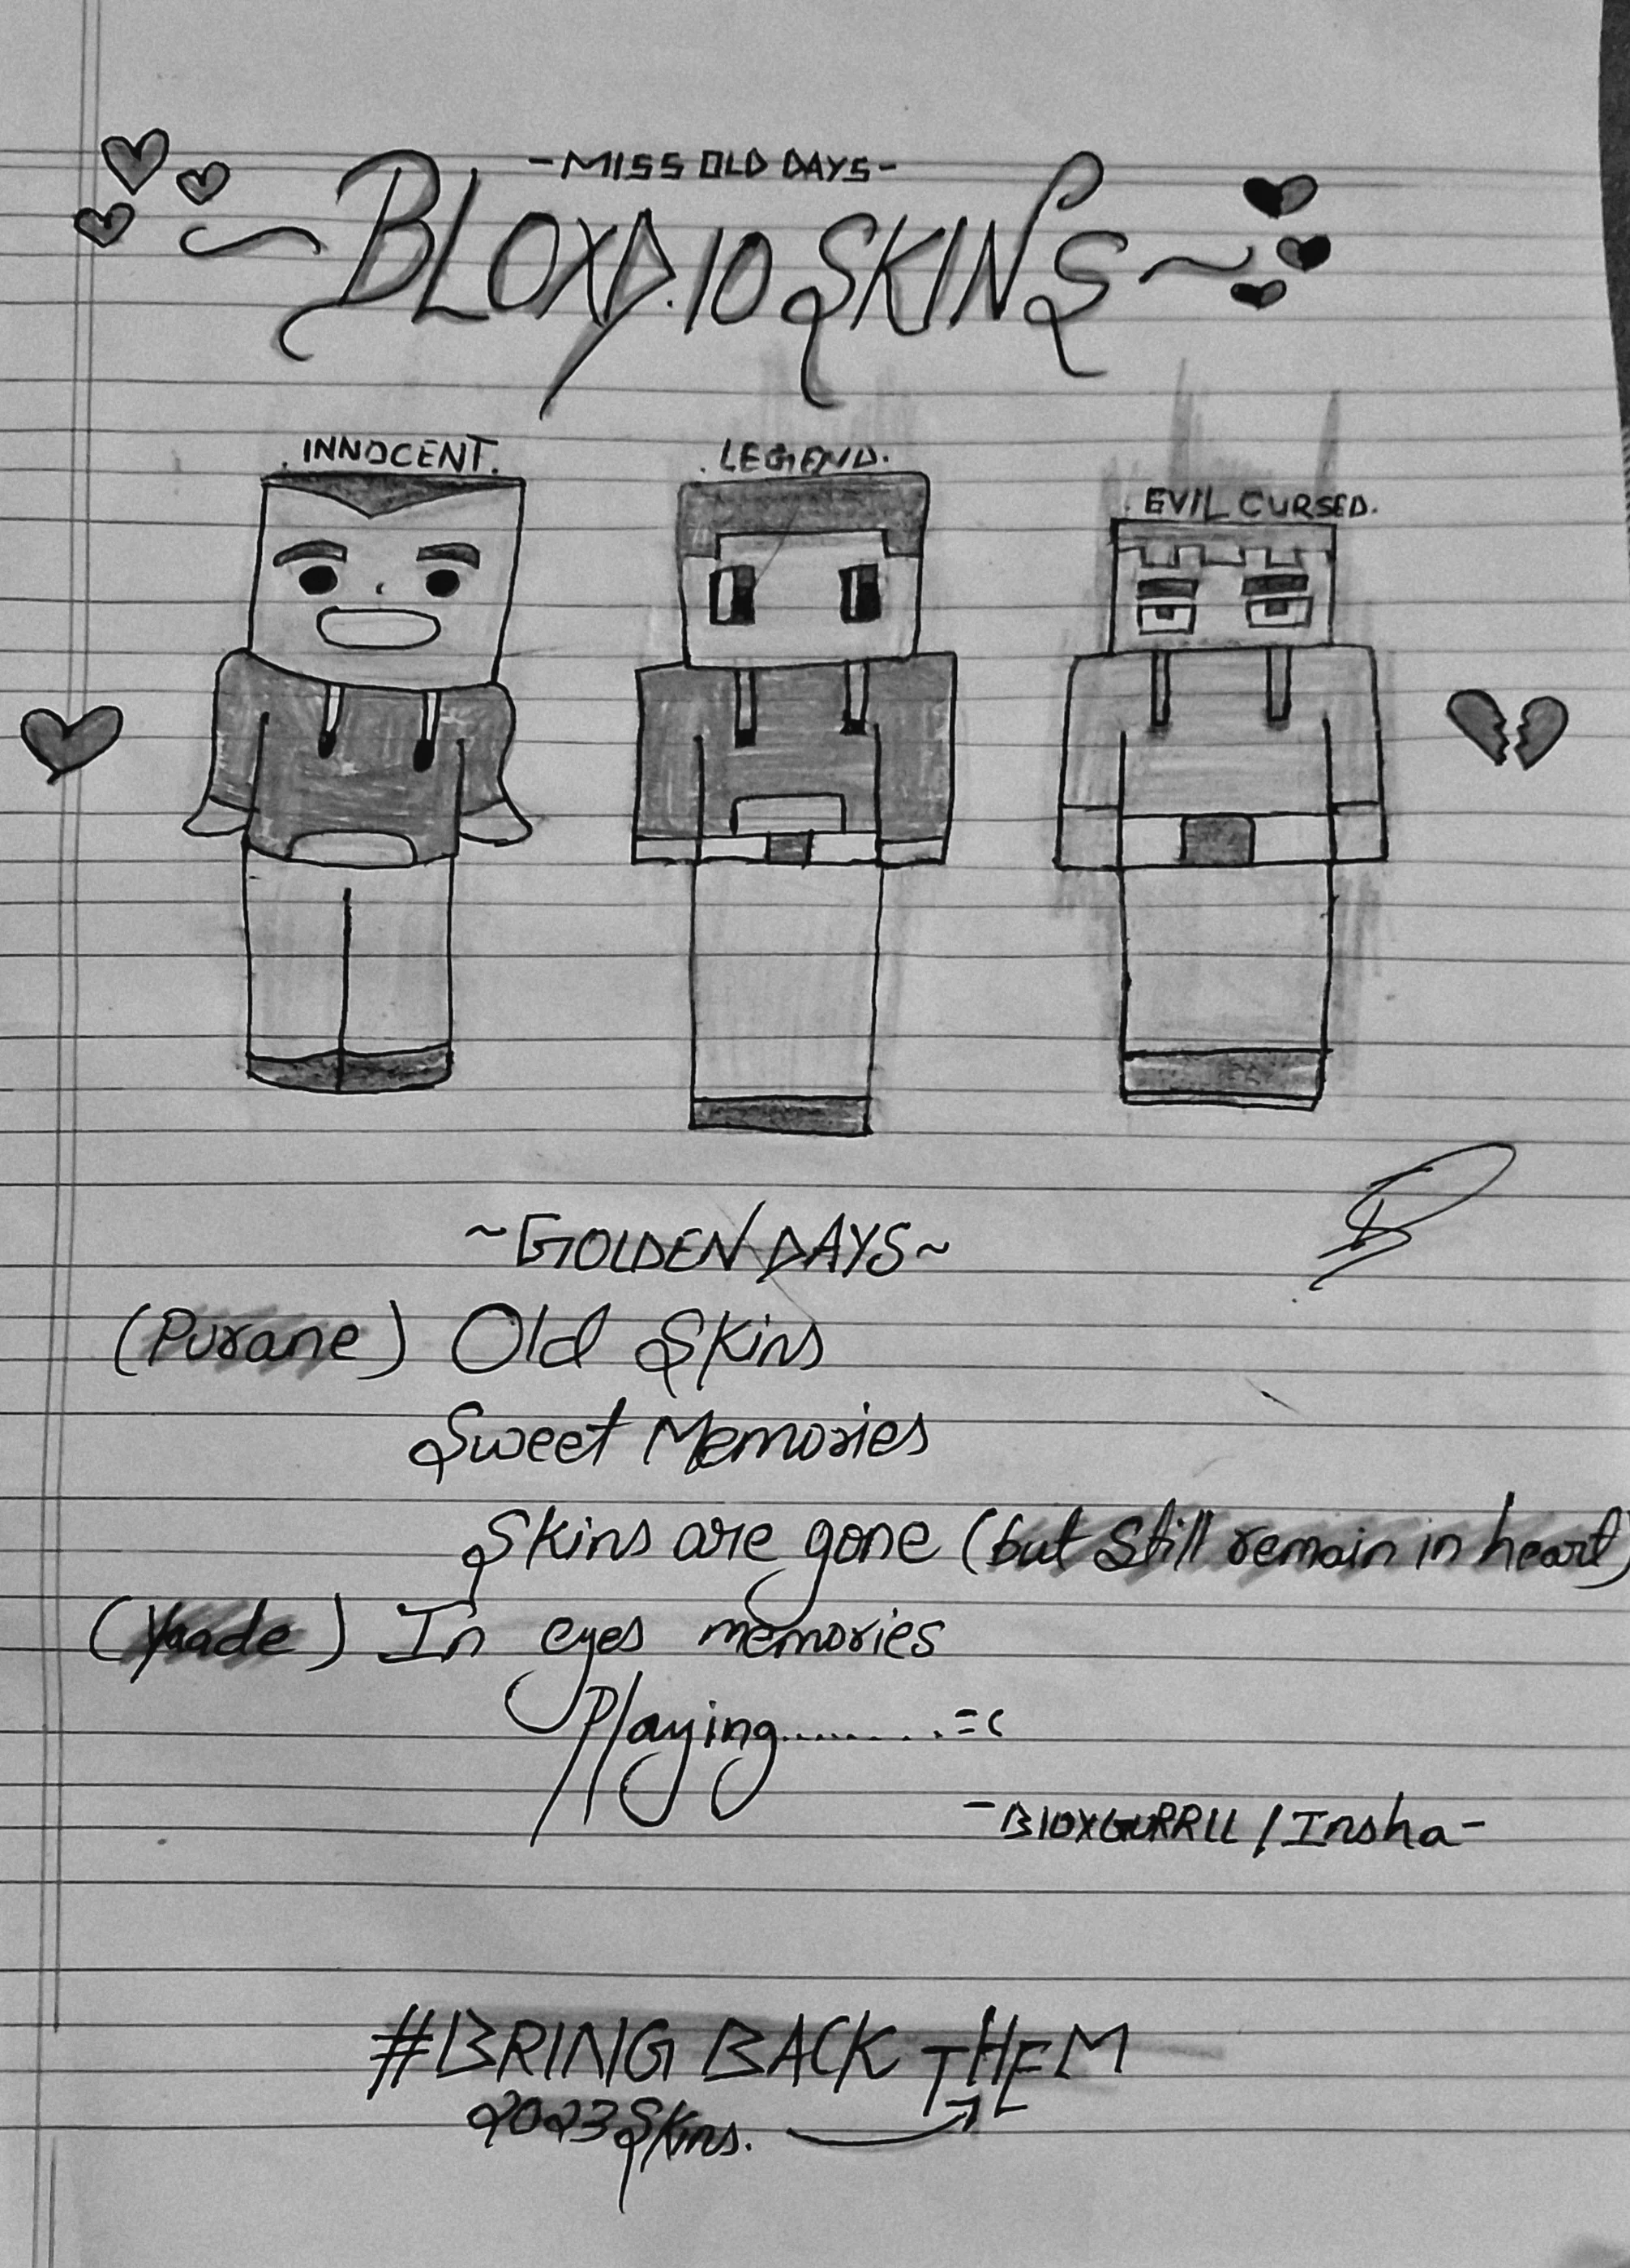 -MISS OLD DAYS-
~BLOXD.IO SKINS~
.INNOCENT.
.LEGEND.
.EVIL CURSED.
~GOLDEN DAYS~
(Purane) Old Skins
Sweet Memories
Skins are gone (but still remain in heart)
(Yaade) In eyes memories
Playing.........=(
-BlOXGURRLL/Insha-
#BRING BACK THEM
2023 Skins.